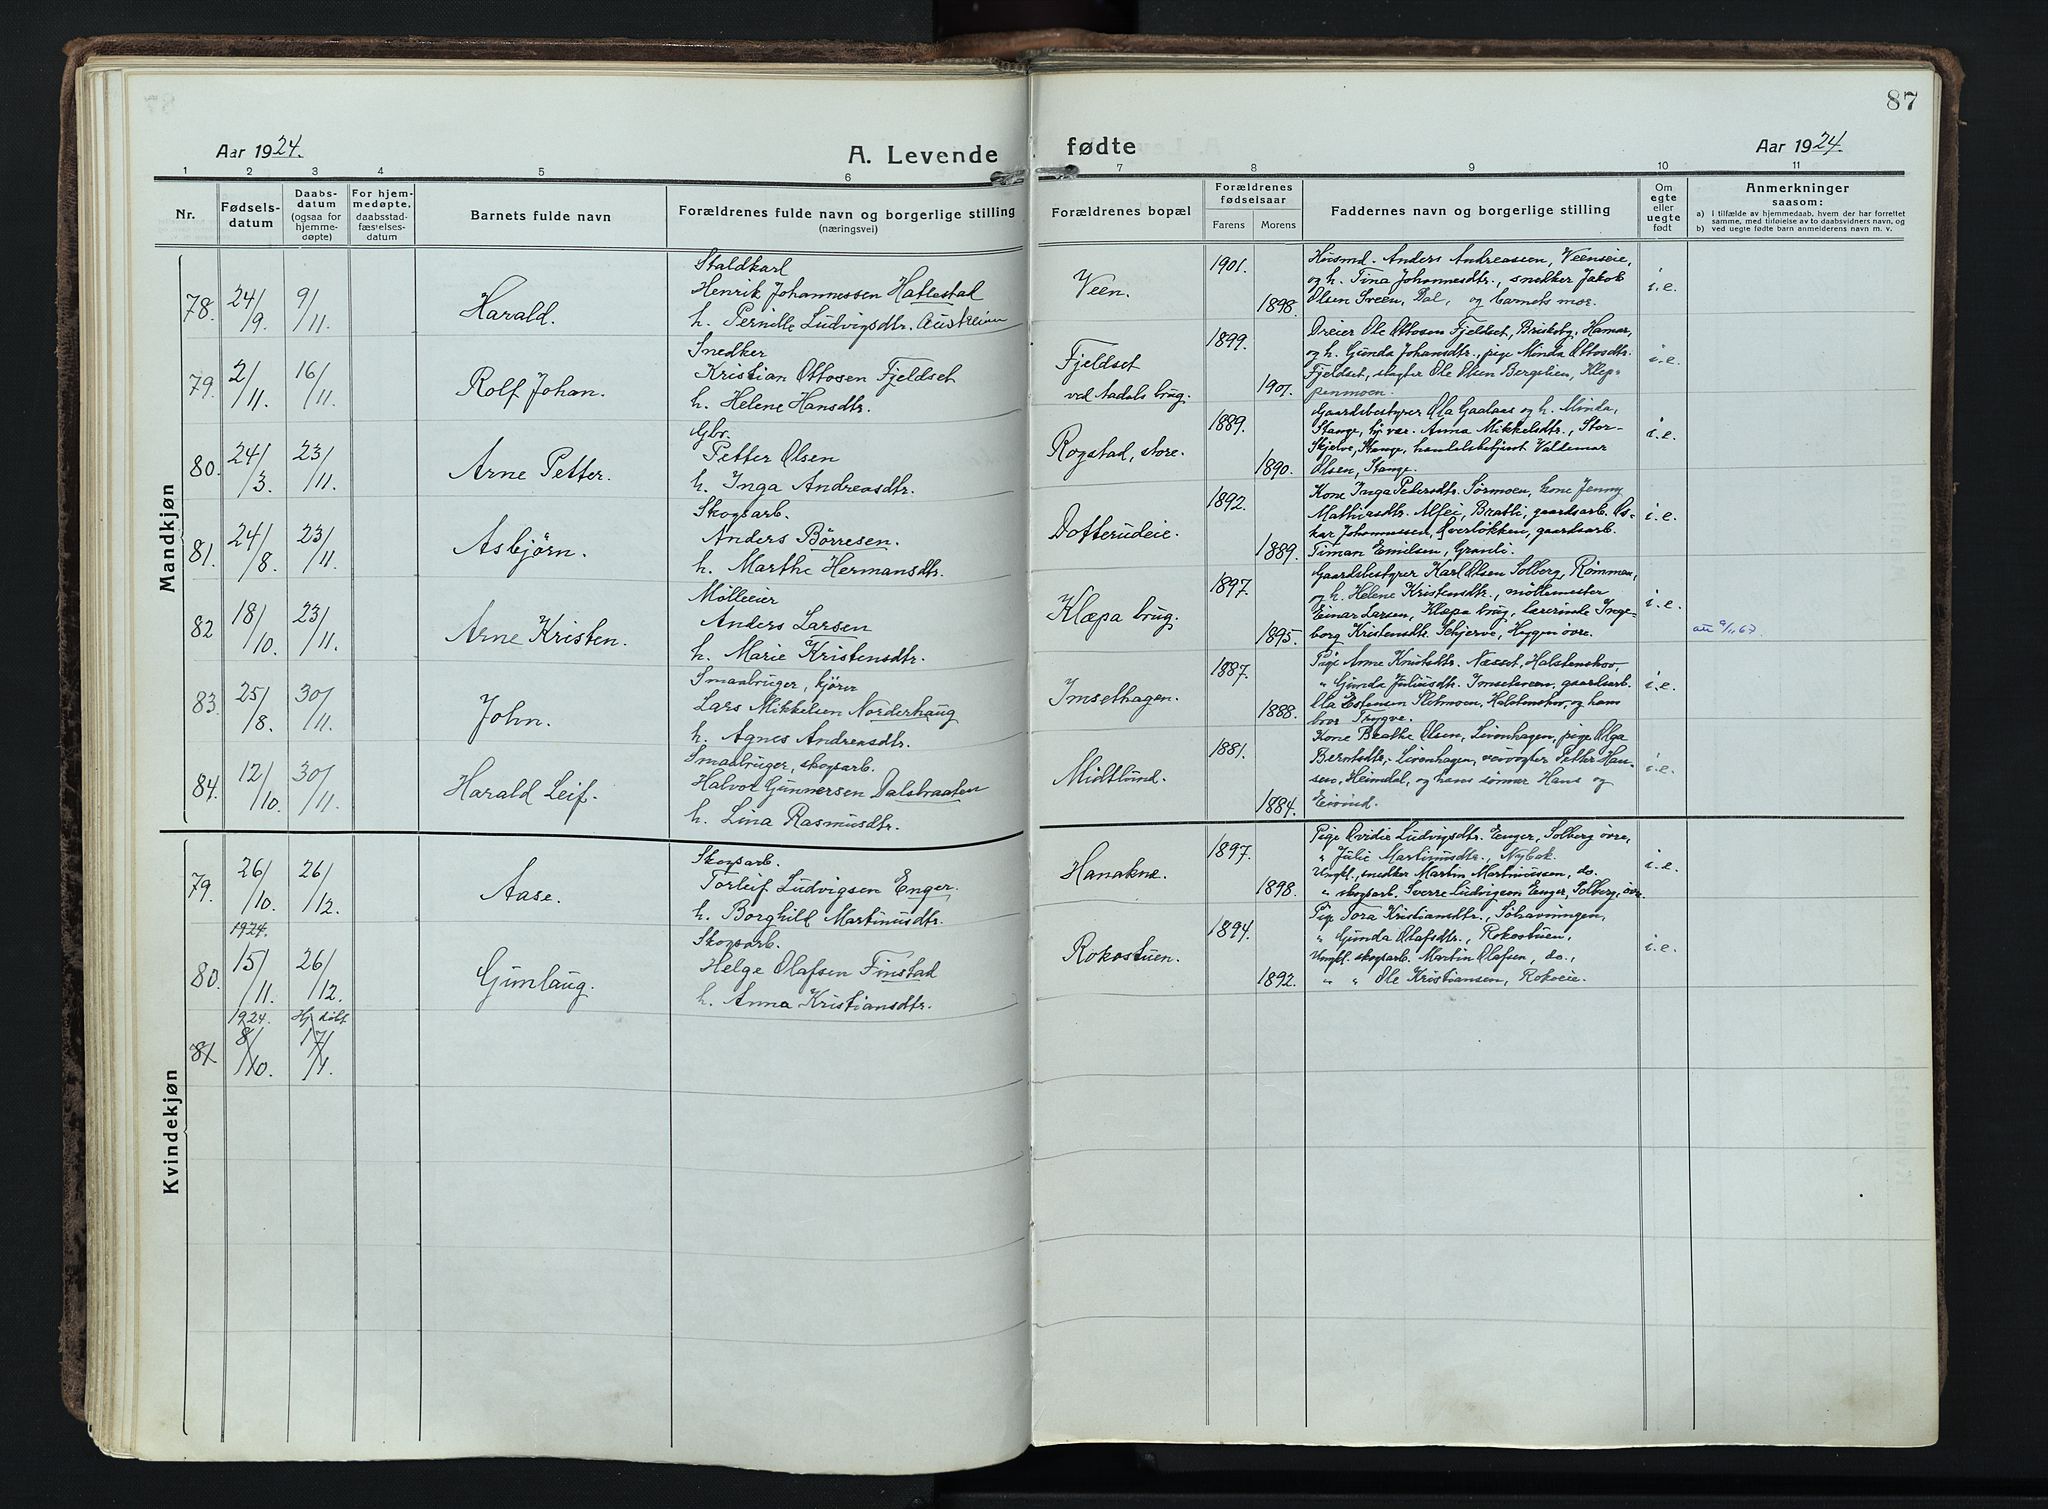 87
Aar 1924.
A. Levende
fødte
Aar 1924.
1 2 3 4 5 6 7 8 9 10 11
Nr.
Fødsels-
datum
Daabs-
datum
(ogsaa for
hjemme-
døpte)
For hjem-
medøpte,
daabsstad-
fæstelses-
datum
Barnets fulde navn
Forældrenes fulde navn og borgerlige stilling
(næringsvei)
Forældrenes bopæl
Forældrenes
fødselsaar
Farens Morens
Faddernes navn og borgerlige stilling
Om
egte
eller
uegte
født
Anmerkninger
saasom:
a) I tilfælde av hjemmedaab, hvem der har forrettet
samme, med tilføielse av to daabsvidners navn, og
b) ved uegte fødte barn anmelderens navn m. v.
Mandkjøn
78. 24/9. 9/11. Harald.
Staldkarl
Henrik Johannessen Hatlestad
h. Pernille Ludvigsdtr.
Veen.
1901. 1898.
Husmd. Anders Andreassen, Veenseie,
og h. Tina Johannesdtr., snekker Jakob
Olsen Sveen, Dal, og barnets mor.
i.e.
79. 2/11. 16/11. Rolf Johan.
Snedker
Kristian Ottosen Fjeldset
h. Helene Hansdtr.
Fjeldset
ved Aadals brug.
1899. 1901.
Dreier Ole Ottosen Fjeldset, Briskeby, Hamar,
og h. Gunda Johansdtr., pige Minda Ottosdtr.
Fjeldset, slagter Ole Olsen Bergslien, Klep-
penmoen.
i.e.
80. 24/3. 23/11. Arne Petter.
Gbr.
Petter Olsen
h. Inga Andreasdtr.
Rogstad, store.
1889. 1890.
Gaardsbestyrer Ola Gaalaas og h. Minda,
Stange, Anna Mikkelsdtr., Stor-
Skjelve, Stange, handelsbetjent Valdemar
Olsen, Stange.
i.e.
81. 24/8. 23/11. Asbjörn.
Skogsarb.
Anders Börresen.
h. Marthe Hermansdtr.
Dotterudeie.
1892. 1889.
Kone Inga Petersdtr. Sørmoen, kone Jenny
Mathiasdtr. Alfei, Bratli, gaardsarb. Os-
kar Johannessen, Överlökken, gaardsarb.
Timan Emilsen, Granli.
i.e.
82 18/10. 23/11. Arne Kristen.
Mølleeier
Anders Larsen
h. Marie Kristensdtr.
Klæpa brug.
1897. 1895.
Gaardsbestyrer Karl Olsen Solberg, Rømmen,
og h. Helene Kristensdtr., møllemester
Einar Larsen, Klæpa brug, lærerinde Inge-
borg Kristensdtr. Skjerve, Hygen övre.
i.e.
att 9/11 67.
83. 25/8. 30/11. John.
Smaabruger, kjörer
Lars Mikkelsen Norderhaug
h. Agnes Andreasdtr.
Imsethagen.
1887. 1888.
Pige Anne Knutsdtr. Næset, Halstenshov,
" Gunda Juliusdtr. Imsetveen, gaardsarb.
Ola Estensen Slotmoen, Halstenshov, og hans
bror Trygve.
i.e.
84. 12/10. 30/11. Harald Leif.
Smaabruger, skogsarb.
Halvor Gunnersen Dalsbraaten
h. Lina Rasmusdtr.
Midtlund.
1881. 1884.
Kone Beathe Olsen, Livenhagen, pige Olga
Berntsdtr. Livenhagen, veivogter Petter Han-
sen, Heimdal, og hans sønner Hans og
Eivind.
i.e.
Kvindekjøn
79. 26/10. 26/12. Aase.
1924.
Skogsarb.
Torleif Ludvigsen Enger.
h. Borghild Martinusdtr.
Hanakne.
1897. 1898.
Pige Ovidie Ludvigsdtr. Enger, Solberg övre,
" Julie Martinusdtr., Nybak.
Ungkl. snedker Martin Martinussen, do.
" skogsarb. Sverre Ludvigsen Enger, Solberg, övr.
i.e.
80. 15/11. 26/12. Gunlaug.
1924.
Skogsarb.
Helge Olafsen Finstad
h. Anna Kristiansdtr.
Rokostuen.
1894. 1892.
Pige Tora Kristiansdtr.,
" Gunda Olafsdtr., Rokostuen,
Ungkl. skogsarb. Martin Olafsen, do.,
" " Ole Kristiansen, Rokoeie.
i.e.
81. 8/10. 17/1.